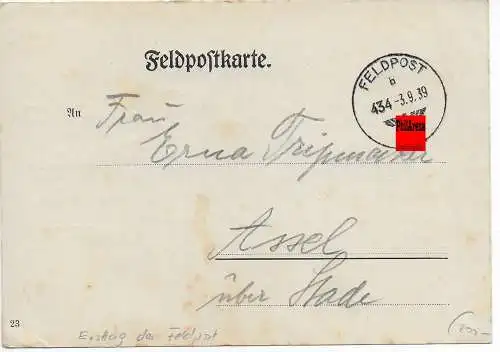 Feldpostkarte.
FELDPOST
b
434 -3.9.39
PhilArena
An
Frau
Erna
Assel
über Stade
23
Erstag der Feldpost